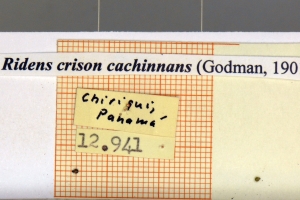 Ridens crison cachinnans (Godman, 190
Chiriqui,
Panamá
12.941